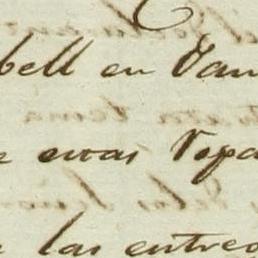 bell en Van
e esas Ropa
e las entreg